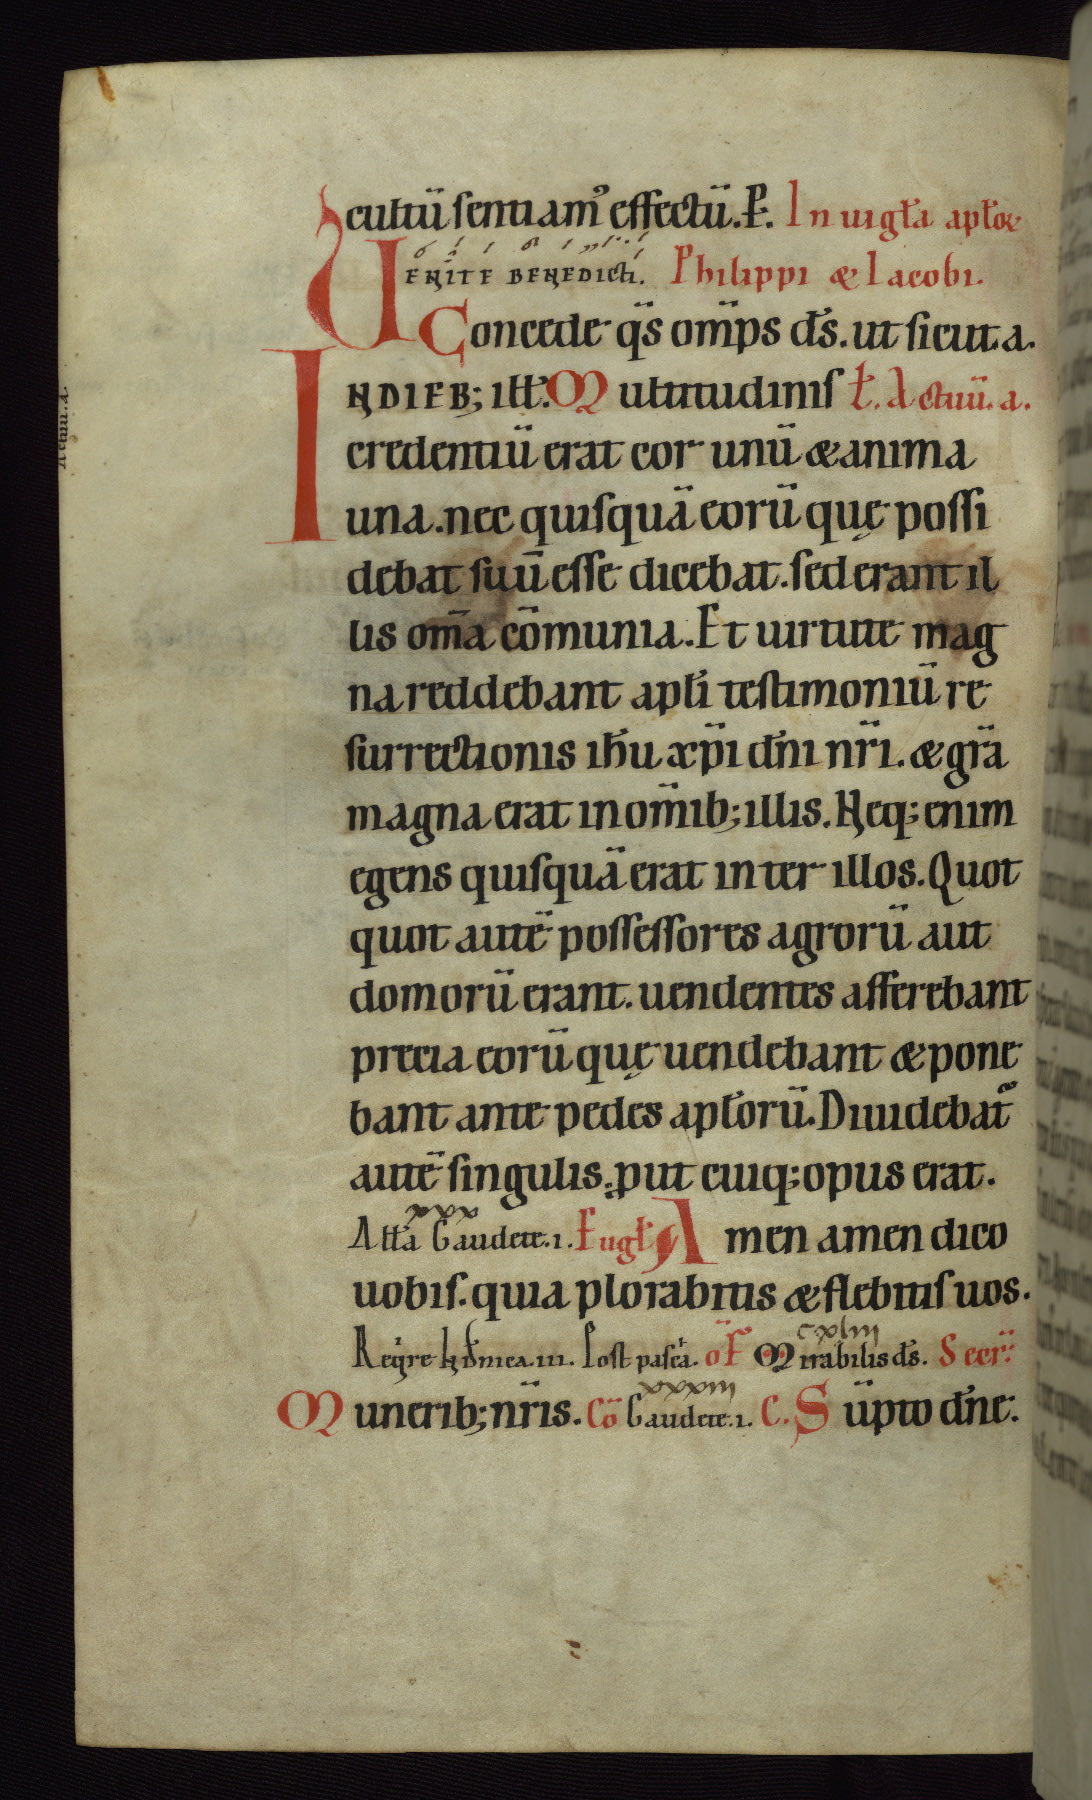 cultū sentiam᷒ effectū. P̵. In uigł̃a apłoꝝ
VENĪTE BENEDICTI. Philippi & Iacobi.
Concede q̄s om̄ps d̄s. ut sicut. a.
INDIEB; ILŁ. Multitudinis ł. Actuū. a.
credentiū erat cor unū & anima
una. nec quisquā eorū quę possi
debat suū esse dicebat. sed erant il
lis om̄a cōmunia. Et uirtute mag
na reddebant apłi testimoniū re
surrectionis ih̄u xp̄i d̄ni nr̄i. & gr̄a
magna erat in om̄ib; illis. Neq; enim
egens quisquā erat inter illos. Quot
quot autē possessores agrorū aut
domorū erant. uendentes afferebant
precia eorū quę uendebant & pone
bant ante pedes apłorū. Diuidebat᷑
autē singulis. ꝓut cuiq; opus erat.
Ałła Gaudete. i. Eugł̃ Amen amen dico
uobis. quia plorabitis & flebitis uos.
Reqͥre in d̄nica. iii. Post pascā. oF̄ Mirabilis d̄s. Secr̄:
Munerib; nr̄is. Cō Gaudete. i. C. Sūpto d̄ne.
Actuū. a.